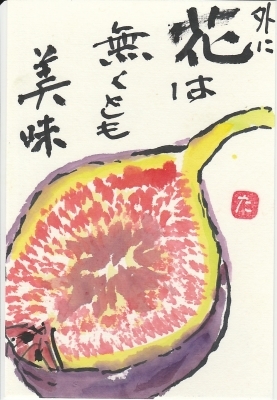 外に
花は
無くとも
美味
た